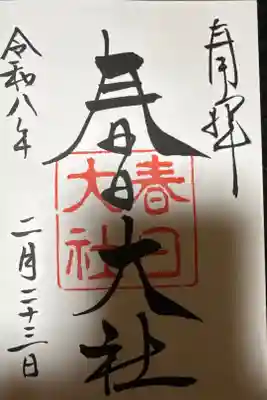 奉拝
春日大社
春日
大社
令和八年
二月二十三日